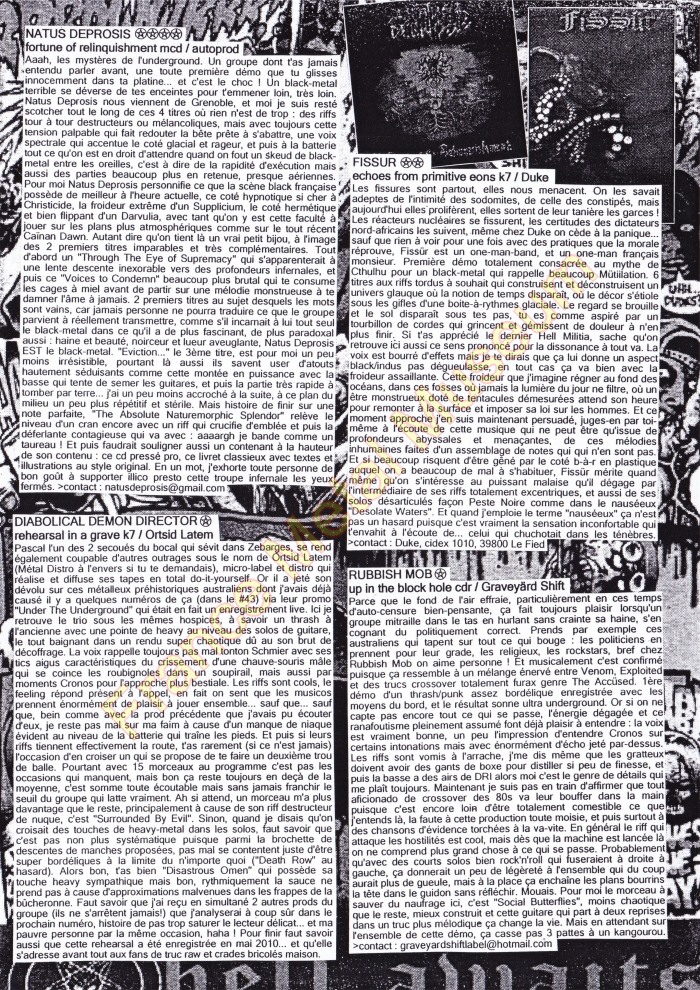 NATUS DEPROSIS
fortune of relinquishment mcd / autoprod
Aaah, les mystères de l'underground. Un groupe dont t'as jamais
entendu parler avant, une toute première démo que tu glisses
innocemment dans ta platine... et c'est le choc ! Un black-metal
terrible se déverse de tes enceintes pour t'emmener loin, très loin.
Natus Deprosis nous viennent de Grenoble, et moi je suis resté
scotcher tout le long de ces 4 titres où rien n'est de trop : des riffs
tour à tour destructeurs ou mélancoliques, mais avec toujours cette
tension palpable qui fait redouter la bête prête à s'abattre, une voix
spectrale qui accentue le coté glacial et rageur, et puis à la batterie
tout ce qu'on est en droit d'attendre quand on fout un skeud de black-
metal entre les oreilles, c'est à dire de la rapidité d'exécution mais
aussi des parties beaucoup plus en retenue, presque aériennes.
Pour moi Natus Deprosis personnifie ce que la scène black française
possède de meilleur à l'heure actuelle, ce coté hypnotique si cher à
Christicide, la froideur extrême d'un Supplicium, le coté hermétique
et bien flippant d'un Darvulia, avec tant qu'on y est cette faculté à
jouer sur les plans plus atmosphériques comme sur le tout récent
Caïnan Dawn. Autant dire qu'on tient là un vrai petit bijou, à l'image
des 2 premiers titres imparables et très complémentaires. Tout
d'abord un "Through The Eye of Supremacy" qui s'apparenterait à
une lente descente inexorable vers des profondeurs infernales, et
puis ce "Voices to Condemn" beaucoup plus brutal qui te consume
les cages à miel avant de partir sur une mélodie monstrueuse à te
damner l'âme à jamais. 2 premiers titres au sujet desquels les mots
sont vains, car jamais personne ne pourra traduire ce que le groupe
parvient à réellement transmettre, comme s'il incarnait à lui tout seul
le black-metal dans ce qu'il a de plus fascinant, de plus paradoxal
aussi : haine et beauté, noirceur et lueur aveuglante, Natus Deprosis
EST le black-metal. "Eviction..." le 3ème titre, est pour moi un peu
moins irrésistible, pourtant là aussi ils savent user d'atouts
hautement séduisants comme cette montée en puissance avec la
basse qui tente de semer les guitares, et puis la partie très rapide à
tomber par terre... j'ai un peu moins accroché à la suite, à ce plan du
milieu un peu plus répétitif et stérile. Mais histoire de finir sur une
note parfaite, "The Absolute Naturemorphic Splendor" relève le
niveau d'un cran encore avec un riff qui crucifie d'emblée et puis la
déferlante contagieuse qui va avec : aaaargh je bande comme un
taureau ! Et puis faudrait souligner aussi un contenant à la hauteur
de son contenu : ce cd pressé pro, ce livret classieux avec textes et
illustrations au style original. En un mot, j'exhorte toute personne de
bon goût à supporter illico presto cette troupe infernale les yeux
fermés. >contact : natusdeprosis@gmail.com
DIABOLICAL DEMON DIRECTOR
rehearsal in a grave k7 / Ortsid Latem
Pascal l'un des 2 secoués du bocal qui sévit dans Zebarges, se rend
également coupable d'autres outrages sous le nom de Ortsid Latem
(Métal Distro à l'envers si tu te demandais), micro-label et distro qui
réalise et diffuse ses tapes en total do-it-yourself. Or il a jeté son
dévolu sur ces métalleux préhistoriques australiens dont j'avais déjà
causé il y a quelques numéros de ça (dans le #43) via leur promo
"Under The Underground" qui était en fait un enregistrement live. Ici je
retrouve le trio sous les mêmes hospices, à savoir un thrash à
l'ancienne avec une pointe de heavy au niveau des solos de guitare,
le tout baignant dans un rendu super chaotique dû au son brut de
décoffrage. La voix rappelle toujours ma tonton Schmier avec ses
tics aigus caractéristiques du crissement d'une chauve-souris mâle
qui se coince les roubignoles dans un soupirail, mais aussi par
moments Cronos pour l'approche plus bestiale. Les riffs sont cools, le
feeling répond présent à l'appel, en fait on sent que les musicos
prennent énormément de plaisir à jouer ensemble... sauf que... sauf
que, bein comme avec la prod précédente que j'avais pu écouter
d'eux, je reste pas mal sur ma faim à cause d'un manque de niaque
évident au niveau de la batterie qui traîne les pieds. Et puis si leurs
riffs tiennent effectivement la route, t'as rarement (si ce n'est jamais)
l'occasion d'en croiser un qui se propose de te faire un deuxième trou
de balle. Pourtant avec 15 morceaux au programme c'est pas les
occasions qui manquent, mais bon ça reste toujours en deçà de la
moyenne, c'est somme toute écoutable mais sans jamais franchir le
seuil du groupe qui latte vraiment. Ah si attend, un morceau m'a plus
davantage que le reste, principalement à cause de son riff destructeur
de nuque, c'est "Surrounded By Evil". Sinon, quand je disais qu'on
croisait des touches de heavy-metal dans les solos, faut savoir que
c'est pas non plus systématique puisque parmi la brochette de
descentes de manches proposées, pas mal se contentent juste d'être
super bordéliques à la limite du n'importe quoi ("Death Row" au
hasard). Alors bon, t'as bien "Disastrous Omen" qui possède sa
touche heavy sympathique mais bon, rythmiquement la sauce ne
prend pas à cause d'approximations malvenues dans les frappes de la
bûcheronne. Faut savoir que j'ai reçu en simultané 2 autres prods du
groupe (ils ne s'arrêtent jamais!) que j'analyserai à coup sûr dans le
prochain numéro, histoire de pas trop saturer le lecteur délicat... et ma
pauvre personne par la même occasion, haha ! Pour finir faut savoir
aussi que cette rehearsal a été enregistrée en mai 2010... et qu'elle
s'adresse avant tout aux fans de truc raw et crades bricolés maison.
FISSUR
FISSUR
echoes from primitive eons k7 / Duke
Les fissures sont partout, elles nous menacent. On les savait
adeptes de l'intimité des sodomites, de celle des constipés, mais
aujourd'hui elles prolifèrent, elles sortent de leur tanière les garces !
Les réacteurs nucléaires se fissurent, les certitudes des dictateurs
nord-africains les suivent, même chez Duke on cède à la panique...
sauf que rien à voir pour une fois avec des pratiques que la morale
réprouve, Fissür est un one-man-band, et un one-man français
monsieur. Première démo totalement consacrée au mythe de
Cthulhu pour un black-metal qui rappelle bigrement Mütiilation. 6
titres aux riffs tordus à souhait qui construisent et déconstruisent un
univers glauque où la notion de temps disparaît, où le décor s'étiole
sous les gifles d'une boite-à-rythmes glaciale. Le regard se brouille
et le sol disparaît sous tes pas, tu es comme aspiré par un
tourbillon de cordes qui grincent et gémissent de douleur à n'en
plus finir. Si t'as apprécié le dernier Hell Militia, sache qu'on
retrouve ici aussi ce sens prononcé pour la dissonance à tout va. La
voix est bourré d'effets mais je dirais que ça lui donne un aspect
black/indus pas dégueulasse, en tout cas ça va bien avec la
froideur assaillante. Cette froideur que j'imagine régner au fond des
océans, dans ces fosses où jamais la lumière du jour ne filtre, où un
être monstrueux doté de tentacules démesurées attend son heure
pour remonter à la surface et imposer sa loi sur les hommes. Et ce
moment approche j'en suis maintenant persuadé, juges-en par toi-
même à l'écoute de cette musique qui ne peut être qu'issue de
profondeurs abyssales et menaçantes, de ces mélodies
inhumaines faites d'un assemblage de notes qui qui n'en sont pas.
Et si beaucoup risquent d'être gêné par le coté b-à-r en plastique
auquel on a beaucoup de mal à s'habituer, Fissür mérite quand
même qu'on s'intéresse au puissant malaise qu'il dégage par
l'intermédiaire de ses riffs totalement excentriques, et aussi de ses
solos désarticulés façon Peste Noire comme dans le nauséeux
"Desolate Waters". Et quand j'emploie le terme "nauséeux" ça n'est
pas un hasard puisque c'est vraiment la sensation inconfortable qui
t'envahit à l'écoute de... celui qui chuchotait dans les ténèbres.
>contact : Duke, cidex 1010, 39800 Le Fied
RUBBISH MOB
up in the block hole cdr / Graveyärd Shift
Parce que le fond de l'air effraie, particulièrement en ces temps
d'auto-censure bien-pensante, ça fait toujours plaisir lorsqu'un
groupe mitraille dans le tas en hurlant sans crainte sa haine, s'en
cognant du politiquement correct. Prends par exemple ces
australiens qui tapent sur tout ce qui bouge : les politiciens en
prennent pour leur grade, les religieux, les rockstars, bref chez
Rubbish Mob on aime personne ! Et musicalement c'est confirmé
puisque ça ressemble à un mélange énervé entre Venom, Exploited
et des trucs crossover totalement furax genre The Accüsed. 1ère
démo d'un thrash/punk assez bordélique enregistrée avec les
moyens du bord, et le résultat sonne ultra underground. Or si on ne
capte pas encore tout ce qui se passe, l'énergie dégagée et ce
ranafoutisme pleinement assumé font déjà plaisir à entendre : la voix
est vraiment bonne, un peu l'impression d'entendre Cronos sur
certains intonations mais avec énormément d'écho jeté par-dessus.
Les riffs sont vomis à l'arrache, j'me dis même que les gratteux
doivent avoir des gants de boxe pour distiller si peu de finesse, et
puis la basse a des airs de DRI alors moi c'est le genre de détails qui
me plaît toujours. Maintenant je suis pas en train d'affirmer que tout
aficionado de crossover des 80s va leur bouffer dans la main
puisque c'est encore loin d'être totalement comestible ce que
j'entends là, la faute à cette production toute moisie, et puis surtout à
des chansons d'évidence torchées à la va-vite. En général le riff qui
attaque les hostilités est cool, mais dès que la machine est lancée là
on ne comprend plus grand chose à ce qui se passe. Probablement
qu'avec des courts solos bien rock'n'roll qui fuseraient à droite à
gauche, ça donnerait un peu de légèreté à l'ensemble qui du coup
aurait plus de gueule, mais à la place ça enchaîne les plans bourrins
la tête dans le guidon sans réfléchir. Mouais. Pour moi le morceau à
sauver du naufrage ici, c'est "Social Butterflies", moins chaotique
que le reste, mieux construit et cette guitare qui part à deux reprises
dans un truc plus mélodique ça change la vie. Mais en attendant sur
l'ensemble de cette démo, ça casse pas 3 pattes à un kangourou.
>contact : graveyardshiftlabel@hotmail.com